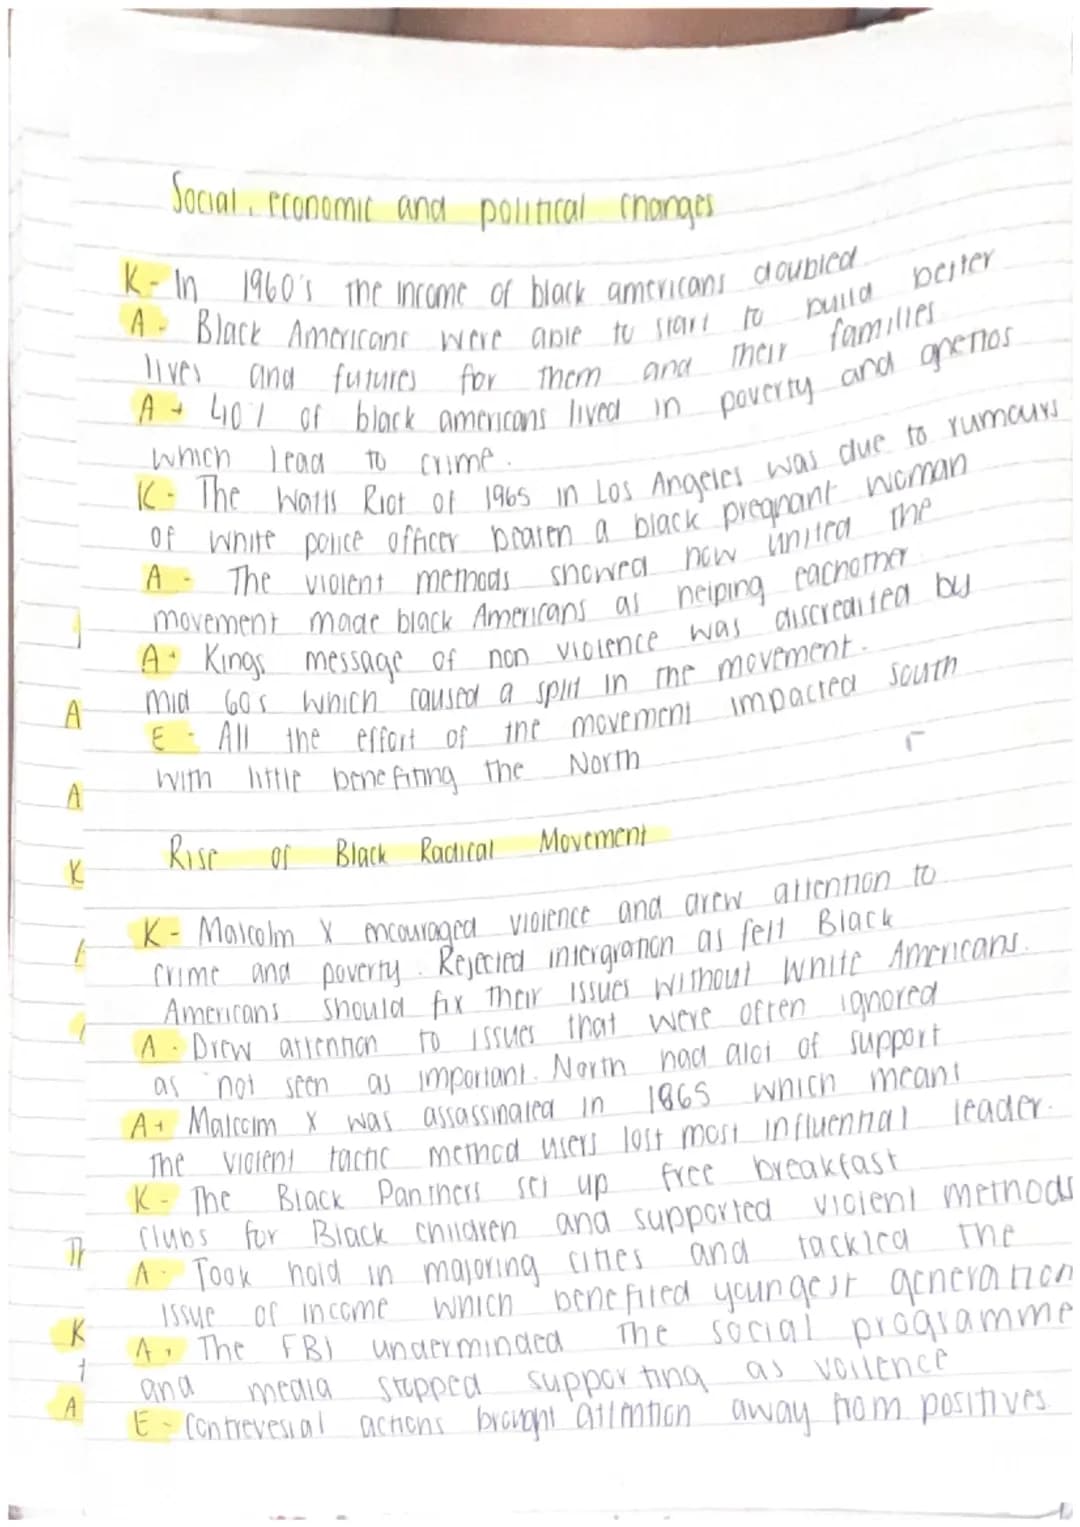 Social, economic and political changes
K - In 1960's the income of black americans doubled.
A - Black Americans were able to start to build better
lives and futures for them and their families
A + 40% of black americans lived in poverty and ghettos
which lead to crime.
K - The Watts Riot of 1965 in Los Angeles was due to rumours
of white police officer beaten a black pregnant woman
A - The violent methods showed how united the
movement made black Americans as helping eachother
A + Kings message of non violence was discredited by
mid 60s which caused a split in the movement.
E - All the effort of the movement impacted south
with little benefiting the North
Rise of Black Radical Movement
K - Malcolm X encouraged violence and drew attention to
crime and poverty. Rejected intergration as felt Black
Americans should fix their issues without White Americans.
A - Drew attention to issues that were often ignored
as not seen as important. North had alot of support
A + Malcolm X was assassinated in 1865 which meant
the violent tactic method users lost most influential leader.
K - The Black Panthers set up free breakfast
clubs for Black children and supported violent methods
A - Took hold in majoring cities and tackled the
issue of income which benefited youngest generation
A + The FBI underminded the social programme
and media stopped supporting as voilence
E - Contrevesial actions brought attention away from positives
A
A
K
K
A